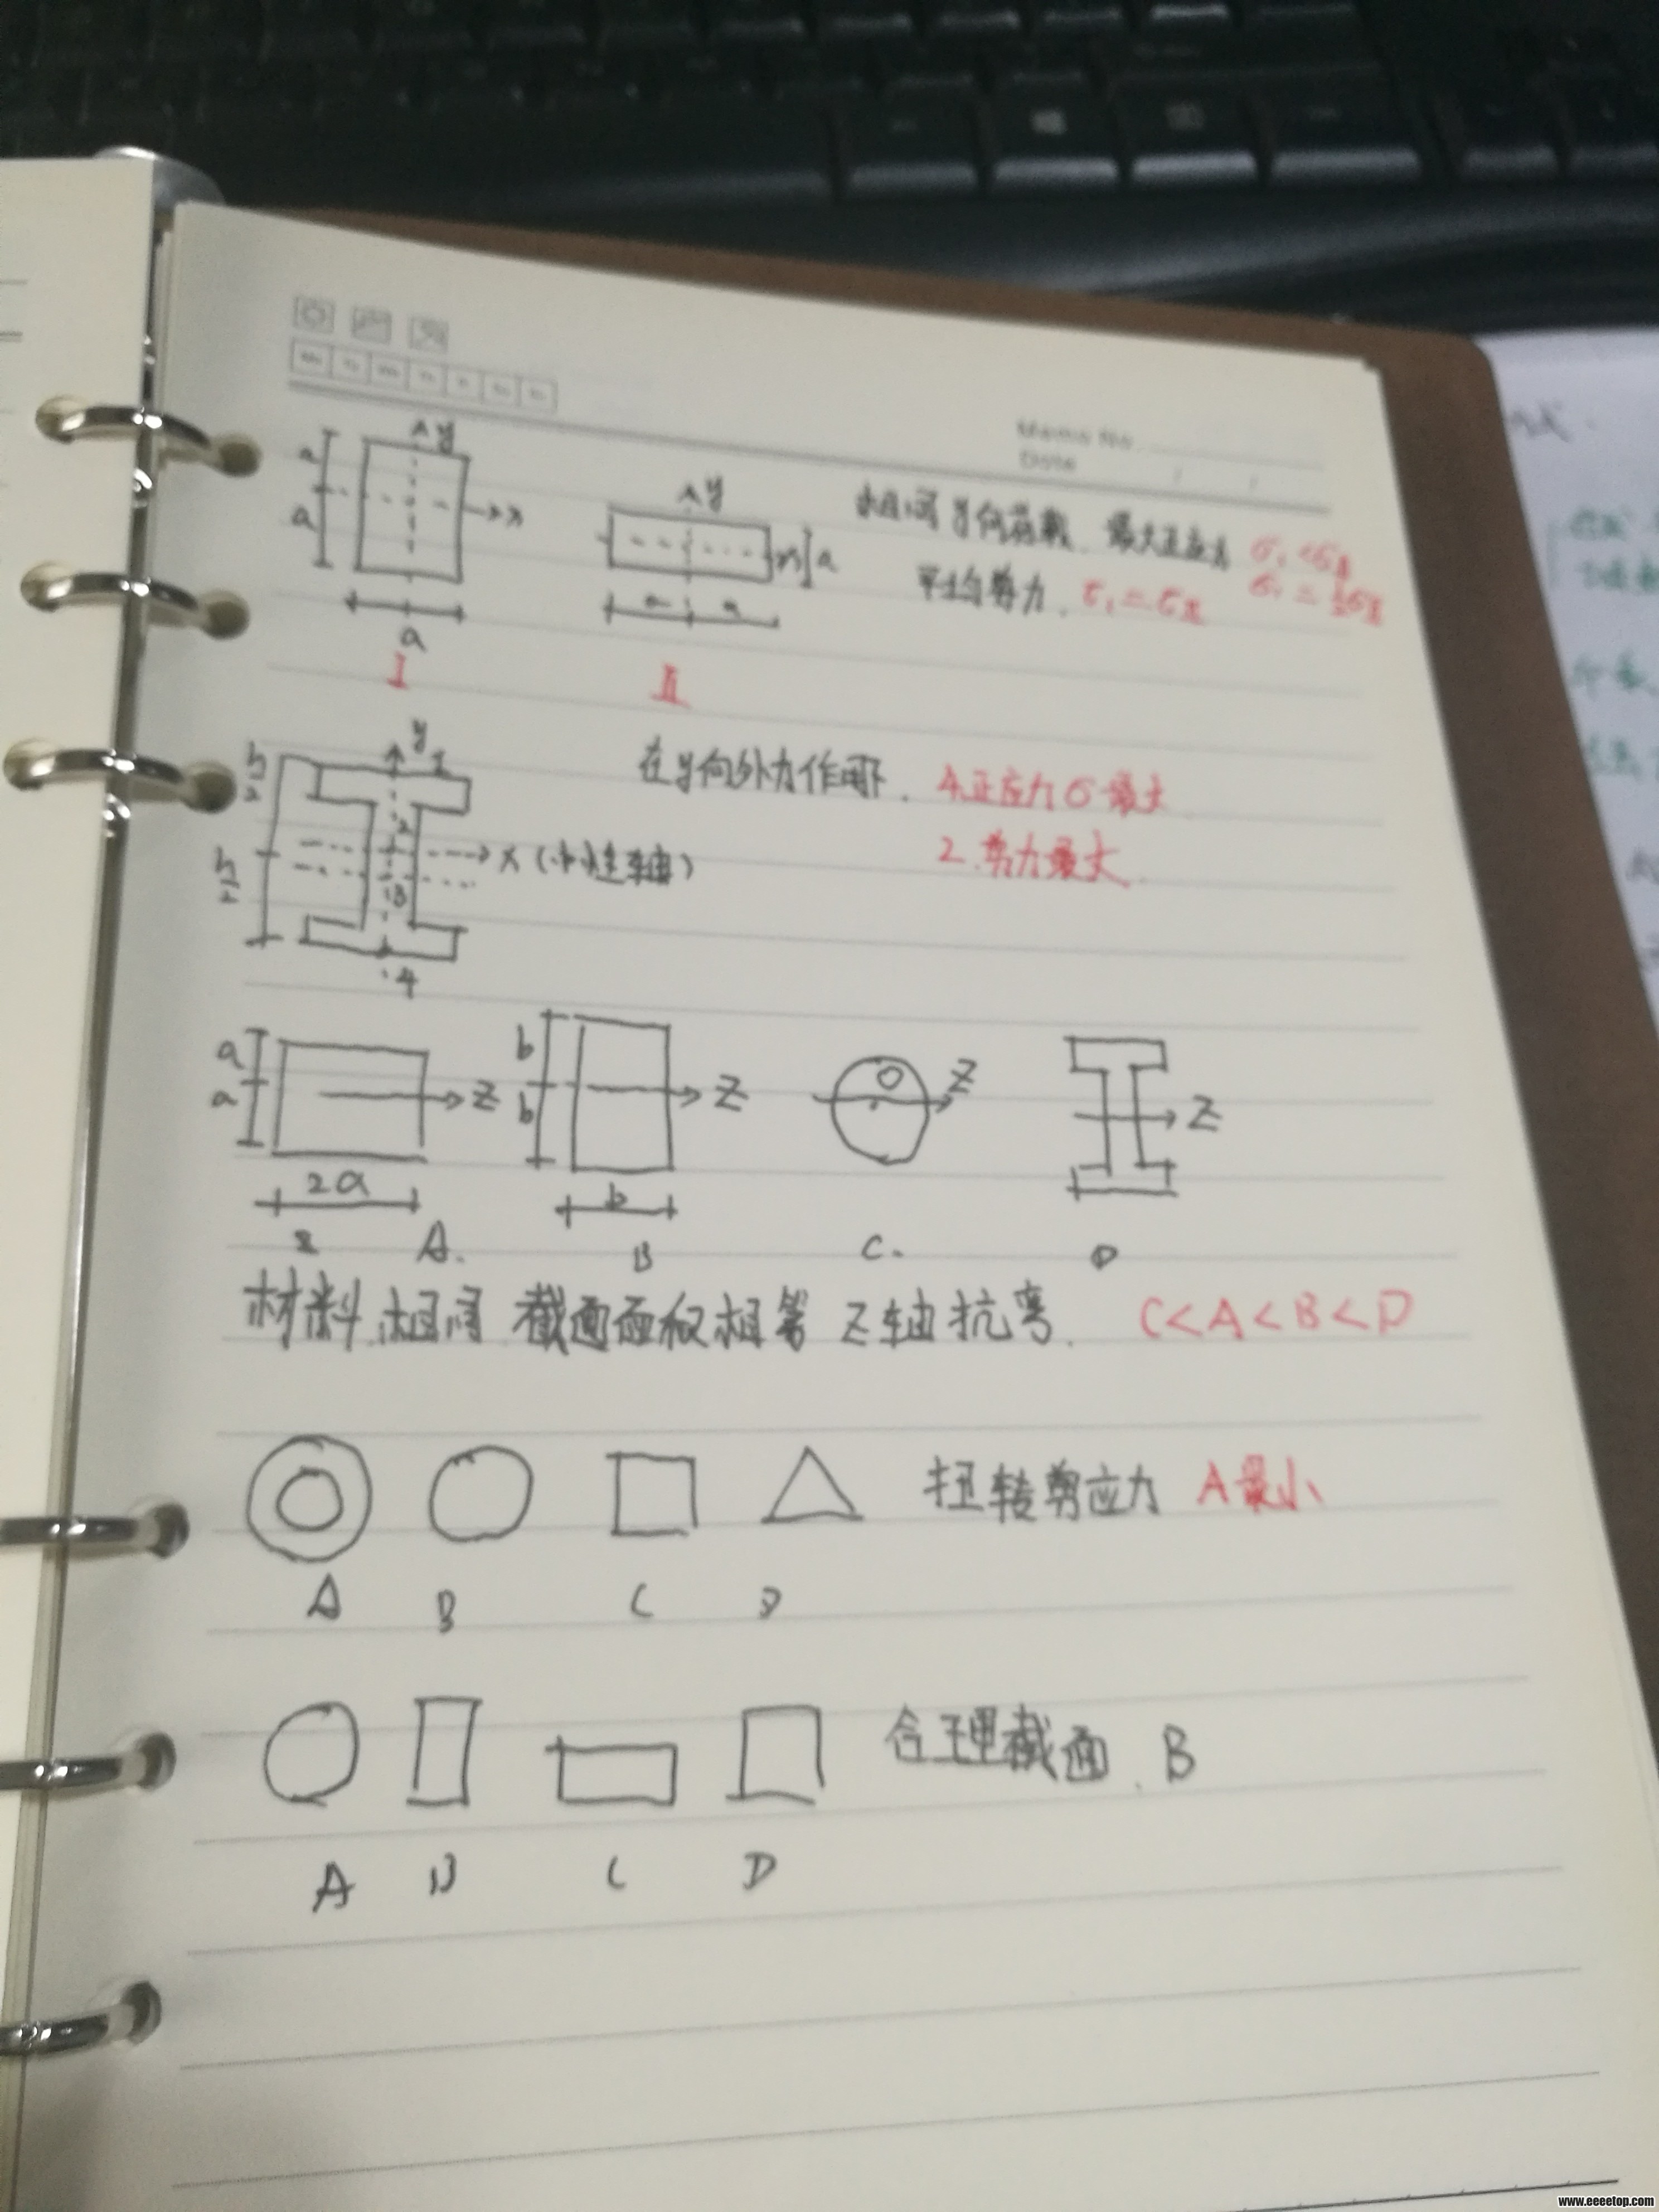 Memo No.
Date / /
a a y x a
I
y a a a
II
相同y向荷载. 最大正应力 σ₁<σⅡ
平均剪力. τ₁=τⅡ σ₁=½σⅡ
h/2 h/2 y 1 2 3 4
x(中性轴)
在y向外力作用下. 4.正应力σ最大
2.剪力最大.
a a Z 2a A.
b b Z b B
Z C.
Z D
材料相同 截面面积相等 Z轴抗弯. C<A<B<D
扭转剪应力 A最小
A B C D
合理截面. B
A B C D
www.eeeetop.com